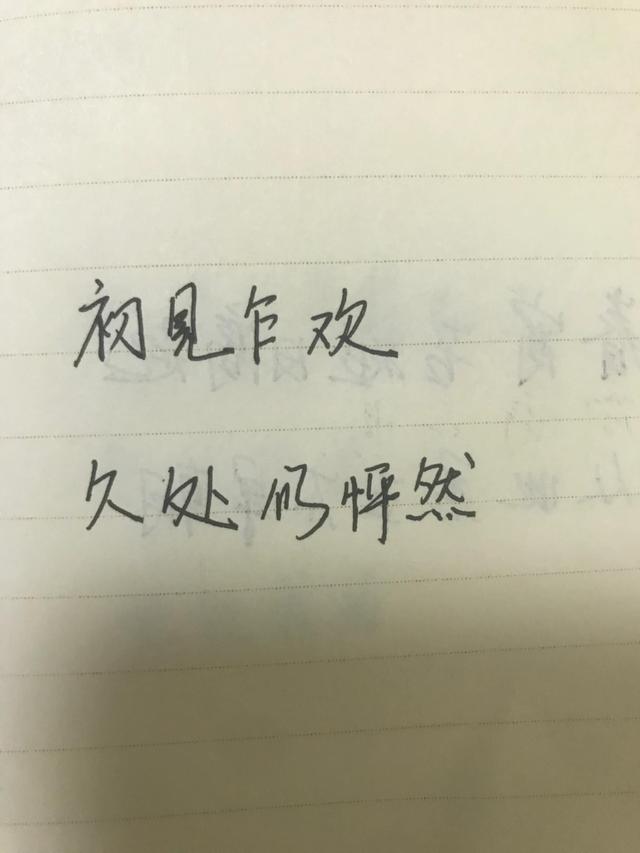 初见乍欢
久处仍怦然